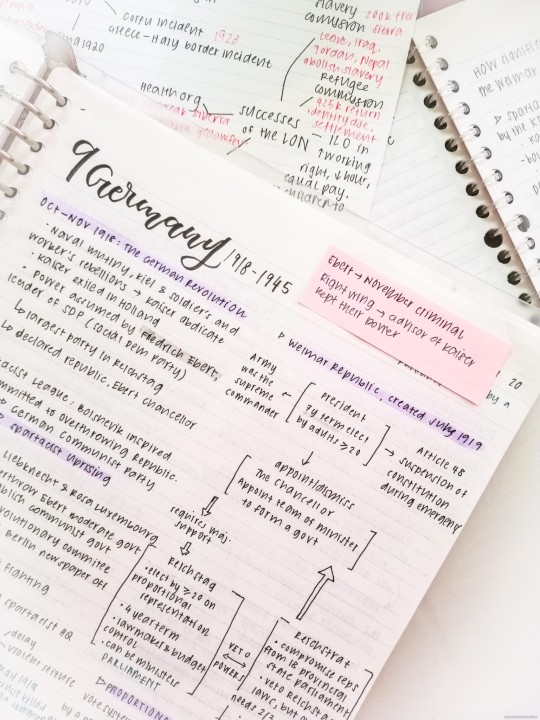 slavery
commission 200k free
Sierra
Leone, Iraq,
Jordan, Nepal
abolish slavery
refugee
commission
425k return
identity doc,
settlement
corfu incident 1923
Greece-Italy border incident
1920
health org
successes
of the LON
ILO ↑
working
right, ↓ hour,
equal pay,
children to
how
the weimar
by the
Germany 1918-1945
Ebert → November criminal
Right wing → advisor of kaiser
kept their power
Oct-Nov 1918: the German Revolution
• Naval mutiny, kiel & soldiers and
worker's rebellions → kaiser abdicate
• kaiser exiled in Holland
• Power assumed by Friedrich Ebert,
leader of SDP (social Dem Party)
↳ largest party in Reichstag
↳ declared republic. Ebert chancellor
League: Bolshevik inspired
committed to overthrowing republic.
→ German communist Party
Spartacist Uprising
Liebknecht & Rosa Luxembourg
Ebert moderate govt
communist govt
committee
Berlin newspaper off
fighting
spartacist HQ
delay
violent
▷ Weimar Republic, created July 1919
Army
was the
supreme
commander
←
president
7y term elect
by adults ≥20
→ Article 48
suspension of
constitution
during emergency
20
by a
appoint/dismiss
the chancellor
appoint team of minister
to form a govt
requires maj.
support
Reichstag
• elect by ≥20 on
proportional
representation
• 4 year term
• lawmaker & budget
control
• can be ministers
PARLIAMENT
veto
powers
Reichsrat
• compromise reps
from 18 provincial
state parliament
• veto Reichstag
laws, but
needs 2/3
▷ PROPORTIONAL
vote system